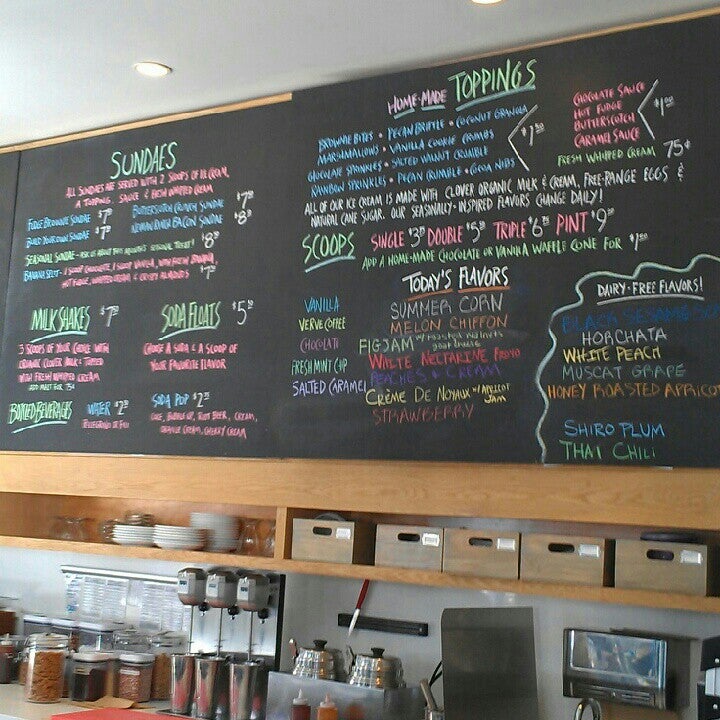 SUNDAES
ALL SUNDAES ARE SERVED WITH 2 SCOOPS OF ICE CREAM,
A TOPPING, SAUCE & FRESH WHIPPED CREAM
FUDGE BROWNIE SUNDAE
BUTTERSCOTCH CRUNCH SUNDAE
BUILD YOUR OWN SUNDAE
BACON SUNDAE
SEASONAL SUNDAE - ASK US ABOUT THIS MONTH'S SEASONAL TREAT!
BANANA SPLIT - 1 SCOOP CHOCOLATE, 1 SCOOP VANILLA, WITH FRESH BANANA,
HOT FUDGE, WHIPPED CREAM & CRISPY ALMONDS
MILK SHAKES
3 SCOOPS OF YOUR CHOICE WITH
ORGANIC CLOVER MILK & TOPPED
WITH FRESH WHIPPED CREAM
ADD MALT FOR 75¢
SODA FLOATS
CHOOSE A SODA & A SCOOP OF
YOUR FAVORITE FLAVOR
BOTTLED BEVERAGES
WATER
SODA POP
ROOT BEER, CREAM,
ORANGE CREAM, CHERRY CREAM
HOME-MADE TOPPINGS
BROWNIE BITES • PECAN BRITTLE • COCONUT GRANOLA
MARSHMALLOWS • VANILLA COOKIE CRUMBS
CHOCOLATE SPRINKLES • SALTED WALNUT CRUMBLE
RAINBOW SPRINKLES • PECAN CRUMBLE • COCOA NIBS
CHOCOLATE SAUCE
HOT FUDGE
BUTTERSCOTCH
CARAMEL SAUCE
$1.00
FRESH WHIPPED CREAM 75¢
ALL OF OUR ICE CREAM IS MADE WITH CLOVER ORGANIC MILK & CREAM, FREE-RANGE EGGS &
NATURAL CANE SUGAR. OUR SEASONALLY-INSPIRED FLAVORS CHANGE DAILY!
SCOOPS
SINGLE DOUBLE TRIPLE PINT
ADD A HOME-MADE CHOCOLATE OR VANILLA WAFFLE CONE FOR
VANILLA
VERVE COFFEE
CHOCOLATE
FRESH MINT CHIP
SALTED CARAMEL
TODAY'S FLAVORS
SUMMER CORN
MELON CHIFFON
FIG JAM W/
WHITE NECTARINE FROYO
PEACHES & CREAM
CRÈME DE NOYAUX W/ APRICOT
JAM
STRAWBERRY
DAIRY-FREE FLAVORS!
BLACK SESAME
HORCHATA
WHITE PEACH
MUSCAT GRAPE
HONEY ROASTED APRICOT
SHIRO PLUM
THAI CHILI